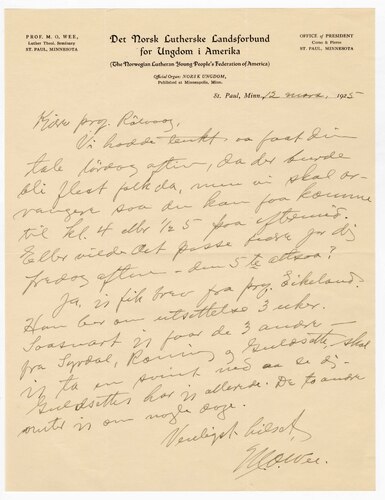 PROF. M. O. WEE,
Luther Theol. Seminary
ST. PAUL, MINNESOTA
Det Norsk Lutherske Landsforbund
for Ungdom i Amerika
(The Norwegian Lutheran Young People's Federation of America)
Official Organ: NORSK UNGDOM,
Published at Minneapolis, Minn.
OFFICE of PRESIDENT
Como & Pierce
ST. PAUL, MINNESOTA
St. Paul, Minn., 12 mars, 1925
Kjære prof. Rölvaag,
Vi hadde tænkt aa faat din
tale lördag aften, da der burde
bli flest folk da, men vi skal ar-
rangere saa du kan faa komme
til kl. 4 ellr ½ 5 paa eftermid.
Eller vilde det passe bedre for dig
fredag aften – den 5te altsaa?
Ja, vi fik brev fra prof. Eikeland.
Han ber om utsættelse 3 uker.
Saasnart vi faar de 3 andre
fra Syrdal, Röning og Guldseth, skal
vi ta en svint ned aa se dig.
Guldseths har vi allerede. De to andre
venter vi om nogle dage.
Venligst hilset,
M.O. Wee.